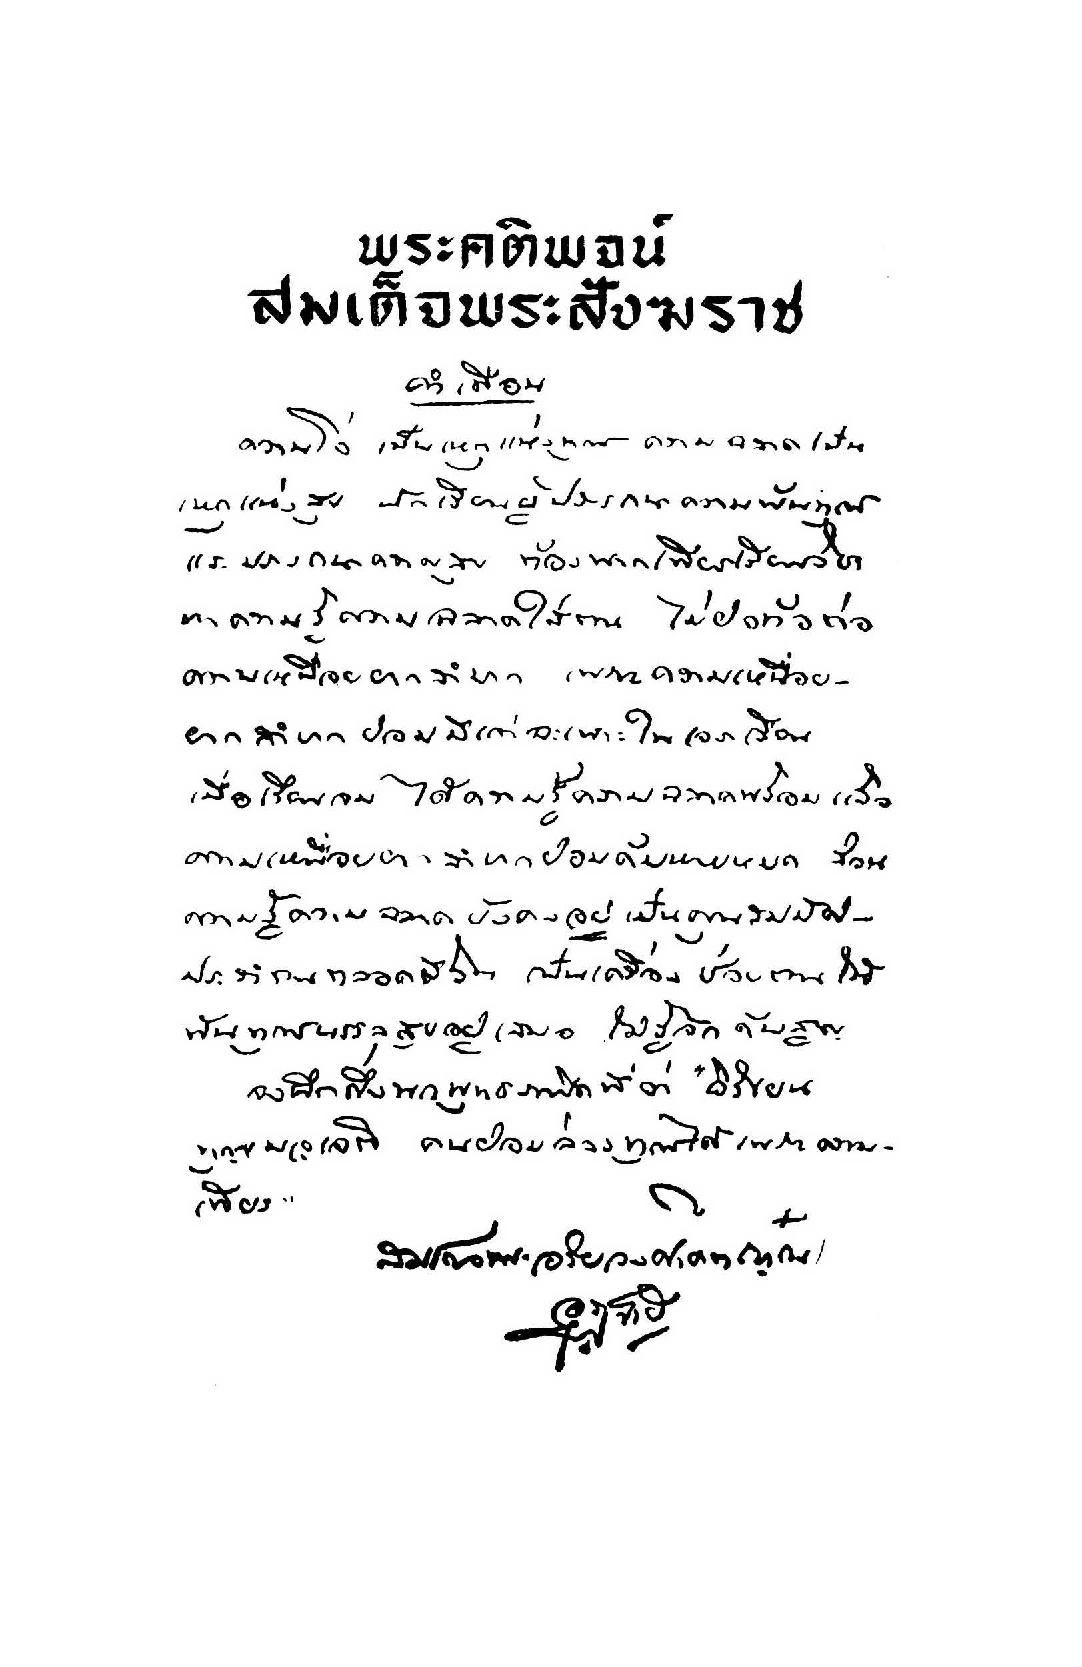 พระคติพจน์
สมเด็จพระสังฆราช
คำเตือน
ความโง่ เป็นเหตุแห่งทุกข์ ความฉลาดเป็น
เหตุแห่งสุข นักเรียนผู้ปรารถนาความพ้นทุกข์
และปรารถนาความสุข ต้องพากเพียรเรียนให้
หาความรู้ความฉลาดใส่ตน ไม่ย่อท้อต่อ
ความเหนื่อยยากลำบาก เพราะความเหนื่อย-
ยากลำบากย่อมมีแต่ฉะเพาะในเวลาเรียน
เมื่อเรียนจบ ได้ความรู้ความฉลาดพร้อมแล้ว
ความเหนื่อยยากลำบากย่อมดับหายหมด ส่วน
ความรู้ความฉลาด ยังคงอยู่ เป็นคุณสมบัติ-
ประจำตนตลอดชีวิต เป็นเครื่องช่วยตนให้
พ้นทุกข์บรรลุสุขอยู่เสมอ ไม่รู้จักดับสูญ
จงนึกถึงพระพุทธภาษิตที่ว่า "วิริเยน
ทุกฺขมจฺเจติ คนย่อมล่วงทุกข์ได้ เพราะความ-
เพียร"
สมเด็จพระอริยวงศาคตญาณ